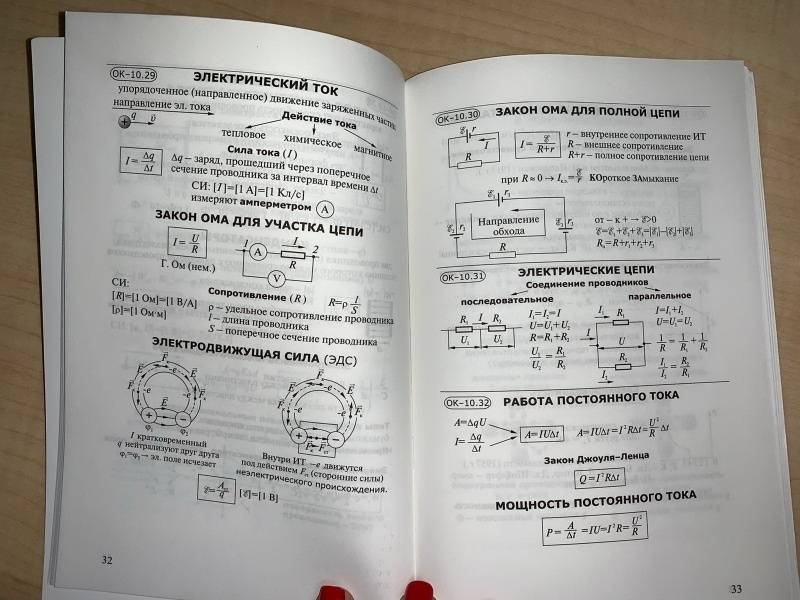 ОК–10.29
ЭЛЕКТРИЧЕСКИЙ ТОК
упорядоченное (направленное) движение заряженных частиц
направление эл. тока
q υ⃗
Действие тока
тепловое химическое магнитное
Сила тока (I)
I = Δq/Δt
Δq – заряд, прошедший через поперечное
сечение проводника за интервал времени Δt
СИ: [I]=[1 А]=[1 Кл/с]
измеряют амперметром (A)
ЗАКОН ОМА ДЛЯ УЧАСТКА ЦЕПИ
I = U/R
1 A I 2
R
V
Г. Ом (нем.)
СИ:
Сопротивление (R) R=ρ l/S
[R]=[1 Ом]=[1 В/А]
[ρ]=[1 Ом·м]
ρ – удельное сопротивление проводника
l – длина проводника
S – поперечное сечение проводника
ЭЛЕКТРОДВИЖУЩАЯ СИЛА (ЭДС)
φ₁ φ₂
I кратковременный
q нейтрализуют друг друга
φ₁=φ₂→ эл. поле исчезает
Внутри ИТ –e движутся
под действием Fст (сторонние силы)
неэлектрического происхождения.
ℰ = Aст/q [ℰ]=[1 В]
32
ОК–10.30
ЗАКОН ОМА ДЛЯ ПОЛНОЙ ЦЕПИ
ℰ r
I
R
I = ℰ/(R+r)
r – внутреннее сопротивление ИТ
R – внешнее сопротивление
R+r – полное сопротивление цепи
при R ≈ 0 → Iк.з.= ℰ/r КОроткое ЗАмыкание
ℰ₁ r₁
ℰ₂ r₂
ℰ₃ r₃
Направление
обхода
R
от – к + → ℰ>0
ℰ=ℰ₁+ℰ₂+ℰ₃=|ℰ₁|–|ℰ₂|+|ℰ₃|
Rп=R+r₁+r₂+r₃
ОК–10.31
ЭЛЕКТРИЧЕСКИЕ ЦЕПИ
Соединение проводников
последовательное параллельное
R₁ I R₂
U₁ U₂
I₁=I₂=I
U=U₁+U₂
R=R₁+R₂
U₁/U₂ = R₁/R₂
I₁ R₁
I U
R₂
I₂
I=I₁+I₂
U=U₁=U₂
1/R = 1/R₁ + 1/R₂
I₁/I₂ = R₂/R₁
ОК–10.32
РАБОТА ПОСТОЯННОГО ТОКА
A=ΔqU
I= Δq/Δt
A=IUΔt
A=IUΔt=I²RΔt= U²/R Δt
Закон Джоуля–Ленца
Q=I²RΔt
МОЩНОСТЬ ПОСТОЯННОГО ТОКА
P= A/Δt =IU=I²R= U²/R
33